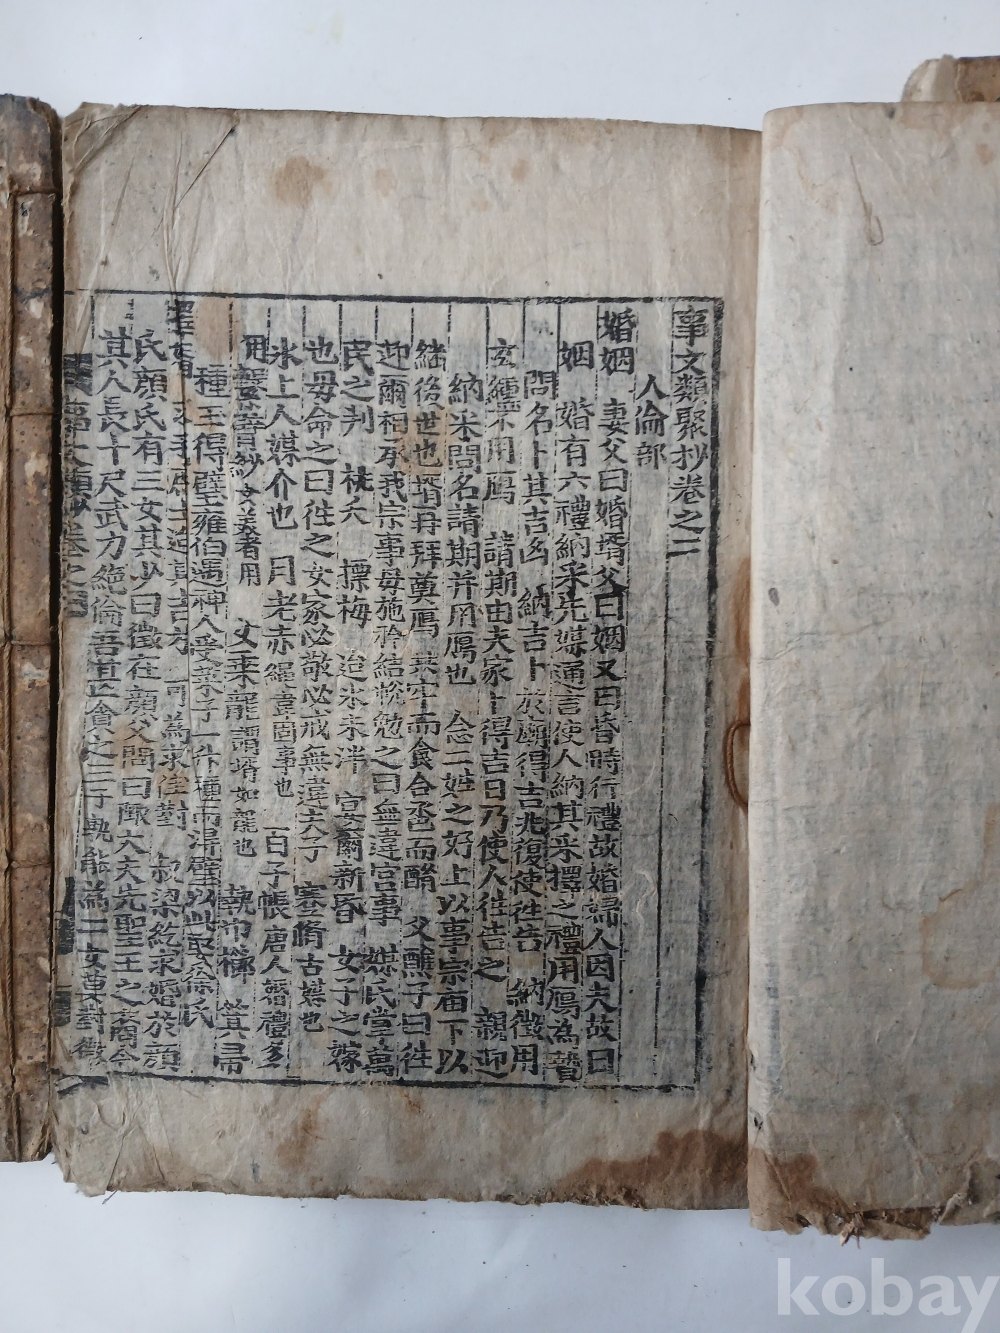 事文類聚抄卷之二
人倫部
婚姻 妻父曰婚壻父曰姻又曰昏時行禮故婚婦人因夫故曰
姻 婚有六禮納采先媒通言使人納其采擇之禮用鴈為贄
問名卜其吉凶 納吉卜於廟得吉兆復使徃告 納徵用
玄纁不用鴈 請期由夫家卜得吉日乃使人徃告之 親迎
納采問名請期并用鴈也 合二姓之好上以事宗庙下以
継後世也壻再拜奠鴈 共牢而食合巹而酳 父醮子曰徃
迎爾相承我宗事母施衿結帨勉之曰無違宫事 媒氏掌萬
民之判 桃夭 摽梅 迨氷未泮 宴爾新昏 女子之嫁
也母命之曰徃之女家必敬必戒無違夫子 蹇脩古媒也
氷上人媒介也 月老赤繩 百子帳唐人婚禮多
用 乘龍謂壻如龍也 執巾櫛 箕帚
種玉得璧雍伯遇神人受菜子一升種而得璧以娶徐氏
可為求 對 叔梁紇求婚於顔
氏顔氏有三女其少曰徵在顔父問曰陬大夫先聖王之裔今
其人長十尺武力絶倫吾甚貪之三子孰能為 二女莫對徵
事文類抄卷之
kobay